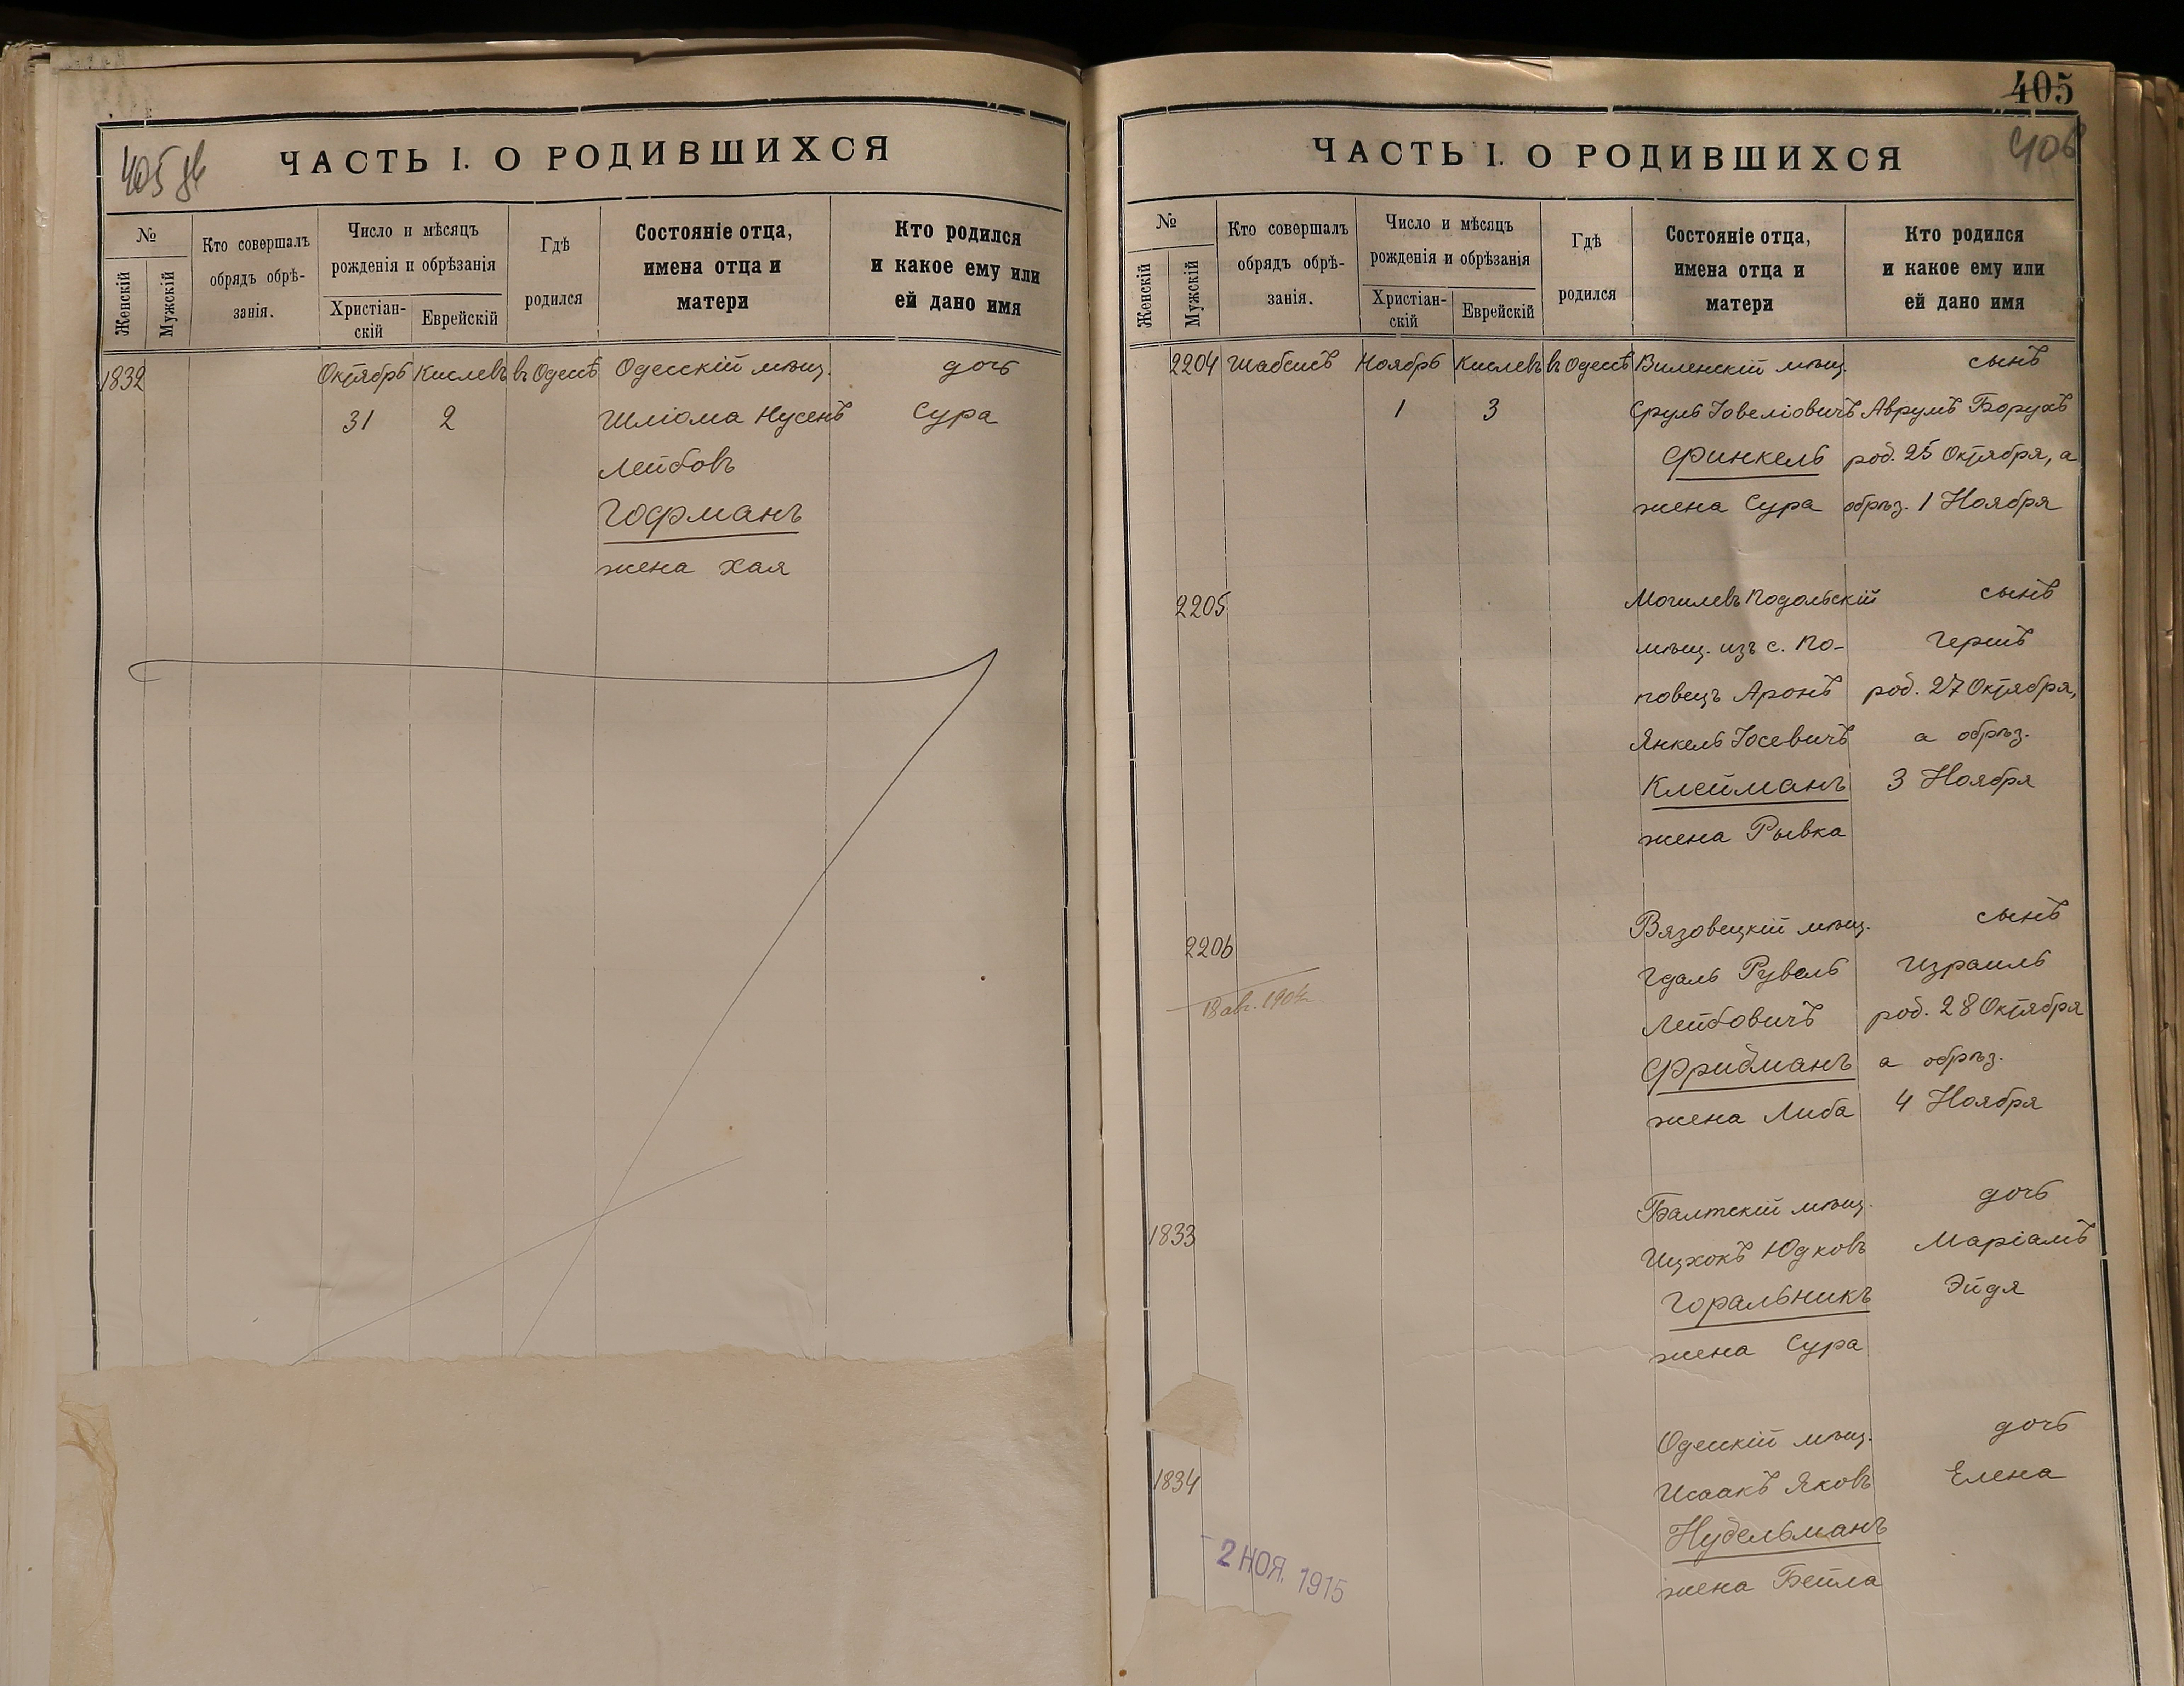 405
405 об
ЧАСТЬ I. О РОДИВШИХСЯ
№
Женскій
Мужскій
Кто совершалъ
обрядъ обрѣ-
занія.
Число и мѣсяцъ
рожденія и обрѣзанія
Христіан-
скій
Еврейскій
Гдѣ
родился
Состояніе отца,
имена отца и
матери
Кто родился
и какое ему или
ей дано имя
1832 Октябрь Кислевъ въ Одессѣ Одесскій мѣщ. дочь
31 2 Шліома Нусенъ Сура
Лейбовъ
Гофманъ
жена Хая
ЧАСТЬ I. О РОДИВШИХСЯ
406
№
Женскій
Мужскій
Кто совершалъ
обрядъ обрѣ-
занія.
Число и мѣсяцъ
рожденія и обрѣзанія
Христіан-
скій
Еврейскій
Гдѣ
родился
Состояніе отца,
имена отца и
матери
Кто родился
и какое ему или
ей дано имя
2204 Шабсисъ Ноябрь Кислевъ въ Одессѣ Виленскій мѣщ. сынъ
1 3 Сруль Іовеліовичъ Аврумъ Борухъ
Финкель род. 25 Октября, а
жена Сура обрѣз. 1 Ноября
2205 Могилевъ Подольскій сынъ
мѣщ. изъ с. По- Гершъ
повецъ Аронъ род. 27 Октября,
Янкель Іосевичъ а обрѣз.
Клейманъ 3 Ноября
жена Рывка
2206 Вязовецкій мѣщ. сынъ
Гдаль Рувель Израиль
18 авг. 190
Лейбовичъ род. 28 Октября
Фридманъ а обрѣз.
жена Либа 4 Ноября
1833 Балтскій мѣщ. дочь
Ицхокъ Юдковъ Маріамъ
Горальникъ Эйдя
жена Сура
1834 Одесскій мѣщ. дочь
Исаакъ Яковъ Елена
Нудельманъ
2 НОЯ. 1915
жена Бейла